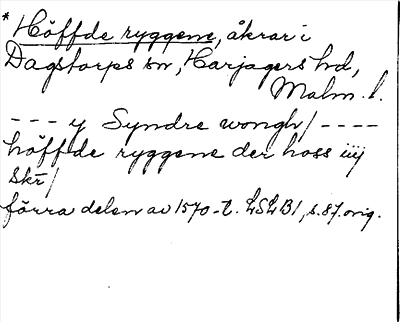 * Höffde ryggene, åkrar i
Dagstorps sn, Harjagers hd,
Malm. l.
--- y Syndre wongh/ ----
höffde ryggene der hoss iiij
skr/
förra delen av 1570-t. LSLB1, s. 87. orig.